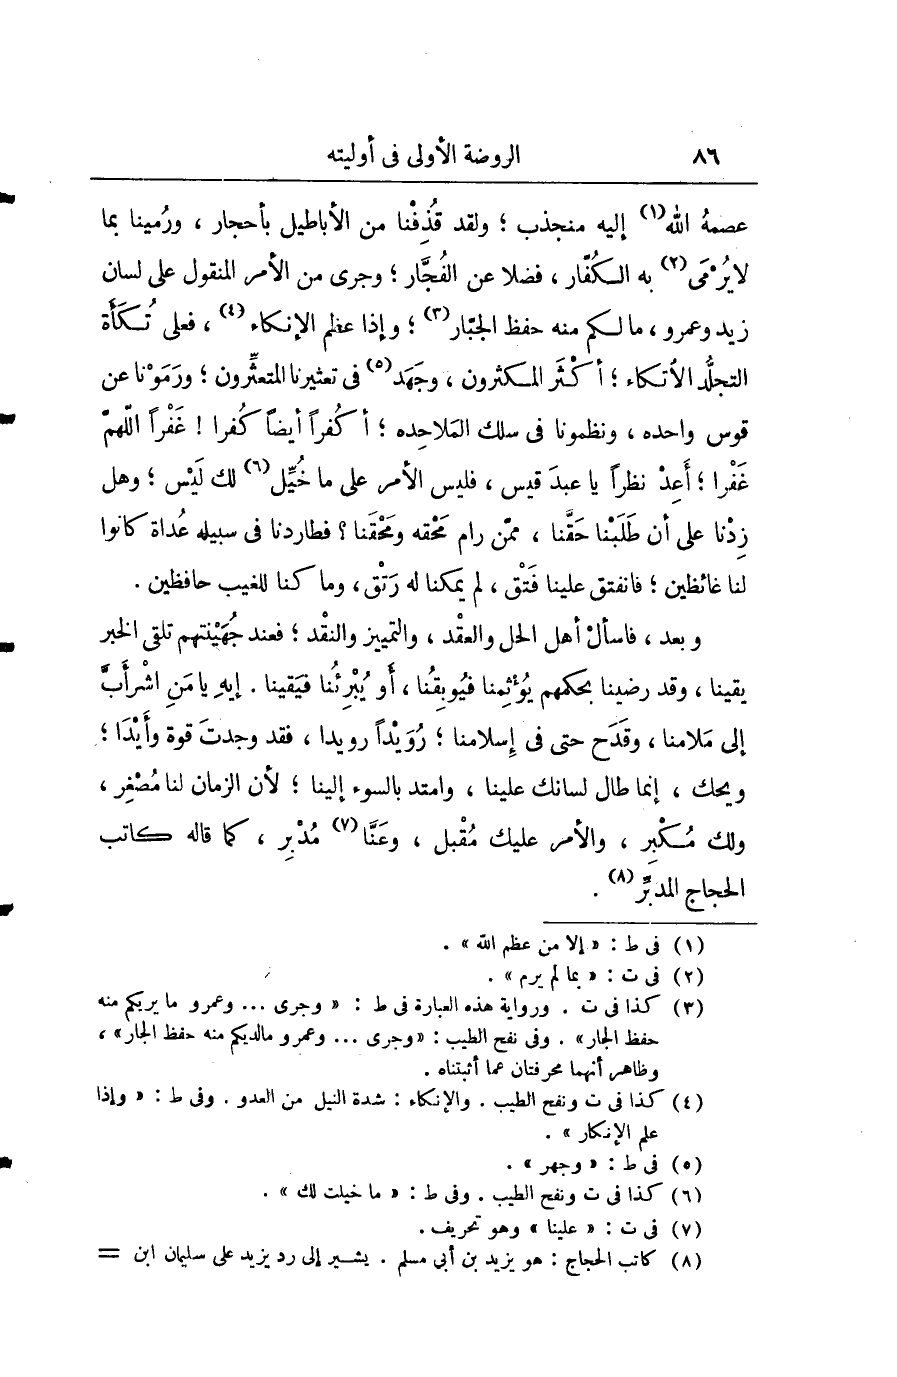 ٨٦ الروضة الأولى فى أوليته
عصمةُ الله(١) إليه منجذب ؛ ولقد قُذِفْنا من الأباطيل بأحجار ، ورُمينا بما
لا يُرْمَى(٢) به الكُفّار ، فضلا عن الفُجَّار ؛ وجرى من الأمر المنقول على لسان
زيد وعمرو ، مالكم منه حفظ الجبّار(٣) ؛ وإذا عظم الإنكاء(٤) ، فعلى تُكَأَة
التجلُّد الأتكاء ؛ أكْثَر المكثرون ، وجَهَد(٥) فى تعثيرنا المتعثِّرون ؛ ورَمَوْنا عن
قوس واحده ، ونظمونا فى سلك المَلاحِده ؛ أكُفراً أيضاً كُفرا ! غَفْراً اللّهمّ
غَفْرا ؛ أَعِدْ نظراً يا عبدَ قيس ، فليس الأمر على ما خُيِّل(٦) لك لَيْس ؛ وهل
زِدْنا على أن طَلَبْنا حَقَّنا ، ممّن رام مَحْقه ومَحْقَنا ؟ فطاردنا فى سبيله عُداة كانوا
لنا غائظين ؛ فانفتق علينا فَتْق ، لم يمكنا له رَتْق ، وما كنا للغيب حافظين .
وبعد ، فاسألْ أهل الحل والعقْد ، والتمييز والنقْد ؛ فعند جُهَيْنتهم تلقى الخبر
يقينا ، وقد رضينا بحكمهم يُؤْثِمنا فيُوبِقُنا ، أو يُبْرِئُنا فيَقينا . إيهِ يا مَنِ اشْرأَبَّ
إلى مَلامنا ، وقَدَح حتى فى إسلامنا ؛ رُوَيْداً رويدا ، فقد وجدتَ قوة وأَيْدَا ؛
ويحك ، إنما طال لسانك علينا ، وامتد بالسوء إلينا ؛ لأن الزمان لنا مُصْغِر ،
ولك مُكْبِر ، والأمر عليك مُقْبل ، وعَنَّا(٧) مُدْبِر ، كما قاله كاتب
الحجاج المدبِّر(٨) .
(١) فى ط : « إلا من عظم الله » .
(٢) فى ت : « بما لم يرم » .
(٣) كذا فى ت . ورواية هذه العبارة فى ط : « وجرى ... وعمرو ما يريكم منه
حفظ الجار » . وفى نفح الطيب : « وجرى ... وعمرو مالديكم منه حفظ الجار » ،
وظاهر أنهما محرفتان عما أثبتناه .
(٤) كذا فى ت ونفح الطيب . والإنكاء : شدة النيل من العدو . وفى ط : « وإذا
علم الإنكار » .
(٥) فى ط : « وجهر » .
(٦) كذا فى ت ونفح الطيب . وفى ط : « ما خيلت لك » .
(٧) فى ت : « علينا » وهو تحريف .
(٨) كاتب الحجاج : هو يزيد بن أبي مسلم . يشير إلى رد يزيد على سليمان ابن =